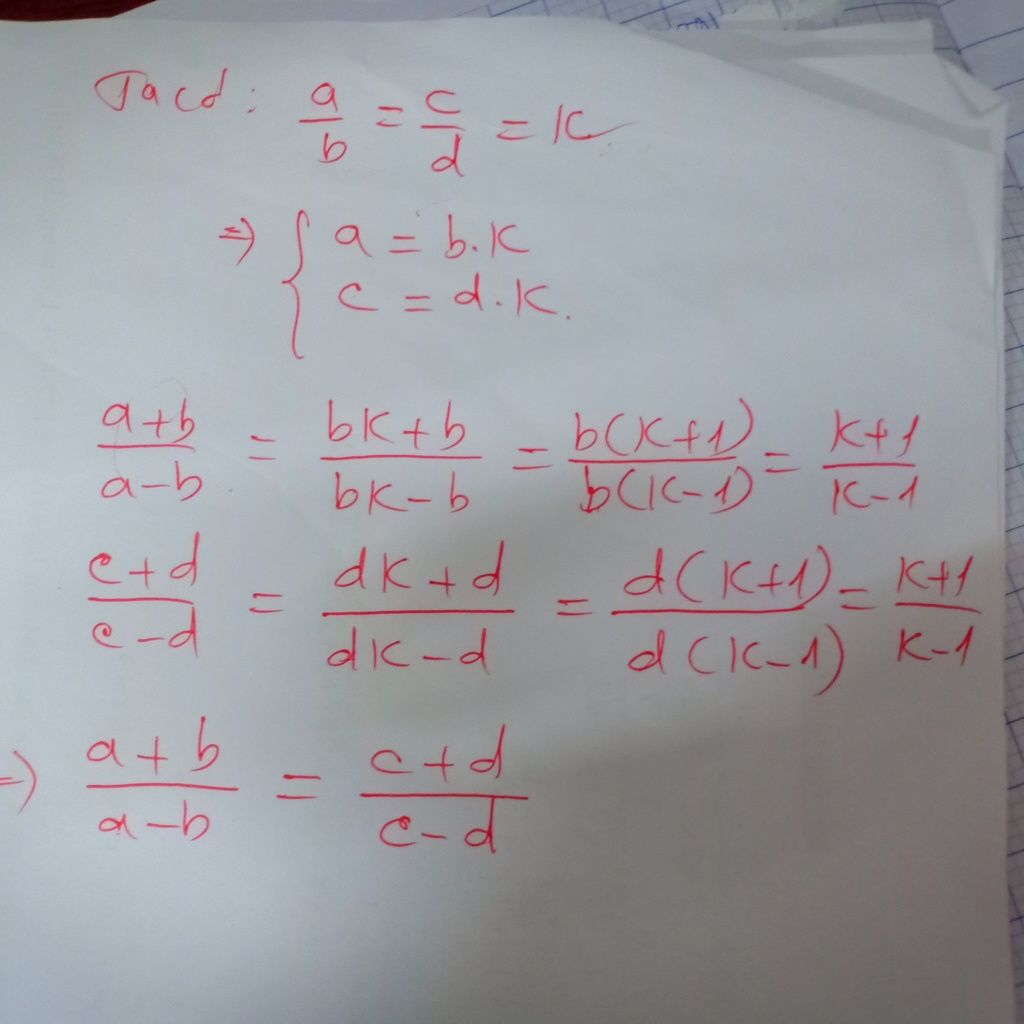 Tacó: a/b = c/d = K
=> { a = b.K
c = d.K.
a+b/a-b = bK+b/bK-b = b(K+1)/b(K-1) = K+1/K-1
c+d/c-d = dK+d/dK-d = d(K+1)/d(K-1) = K+1/K-1
=> a+b/a-b = c+d/c-d